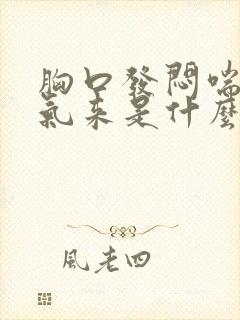 胸口發悶喘
氣來是什麼
風老四